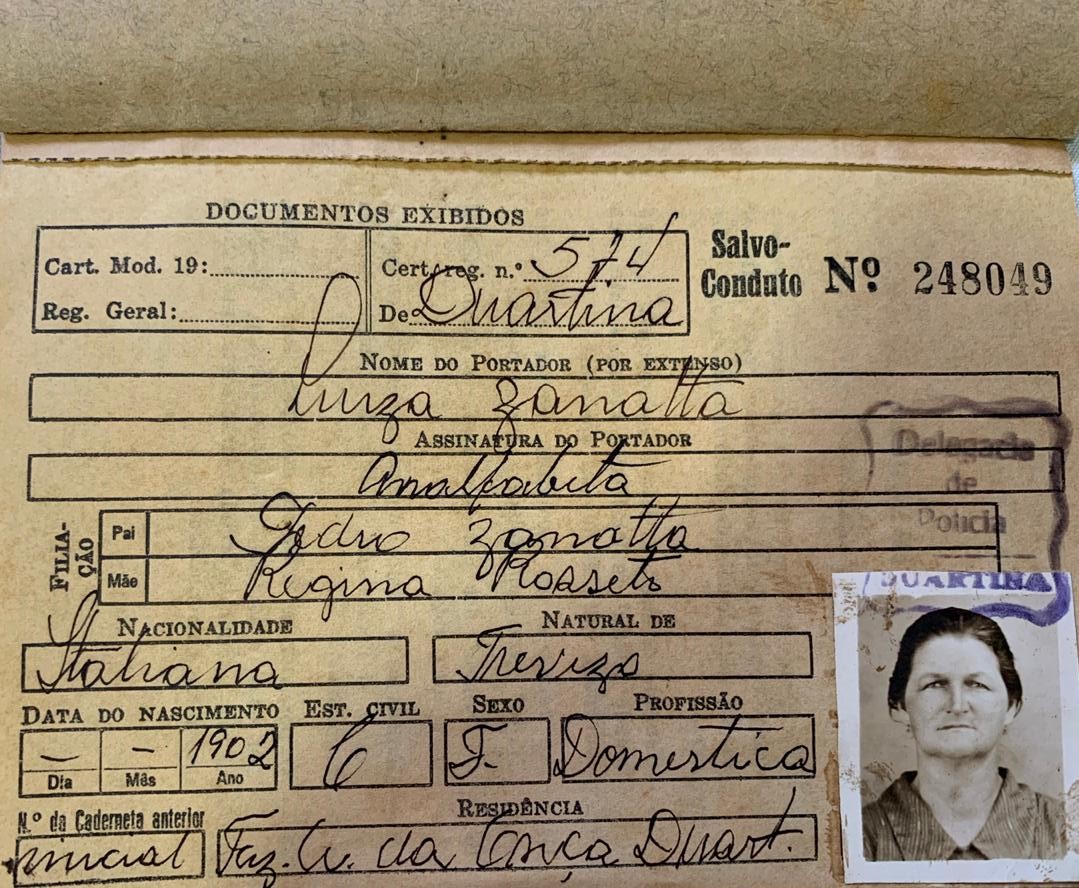 DOCUMENTOS EXIBIDOS
Cart. Mod. 19:
Cert. reg. n.º 574
Reg. Geral:
De Duartina
Salvo-
Conduto Nº 248049
NOME DO PORTADOR (POR EXTENSO)
Luiza Zanatta
ASSINATURA DO PORTADOR
Analfabeta
Delegacia
de
Policia
DUARTINA
FILIA-
ÇÃO
Pai Pedro Zanatta
Mãe Regina Rosseto
NACIONALIDADE
Italiana
NATURAL DE
Trevizo
DATA DO NASCIMENTO
— — 1902
Dia Mês Ano
EST. CIVIL
C
SEXO
F.
PROFISSÃO
Domestica
N.º da Caderneta anterior
inicial
RESIDÊNCIA
Faz. da Onça Duart.